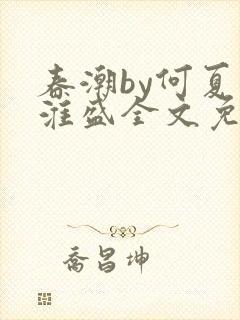 春潮by何夏
淮盛全文免
乔昌坤